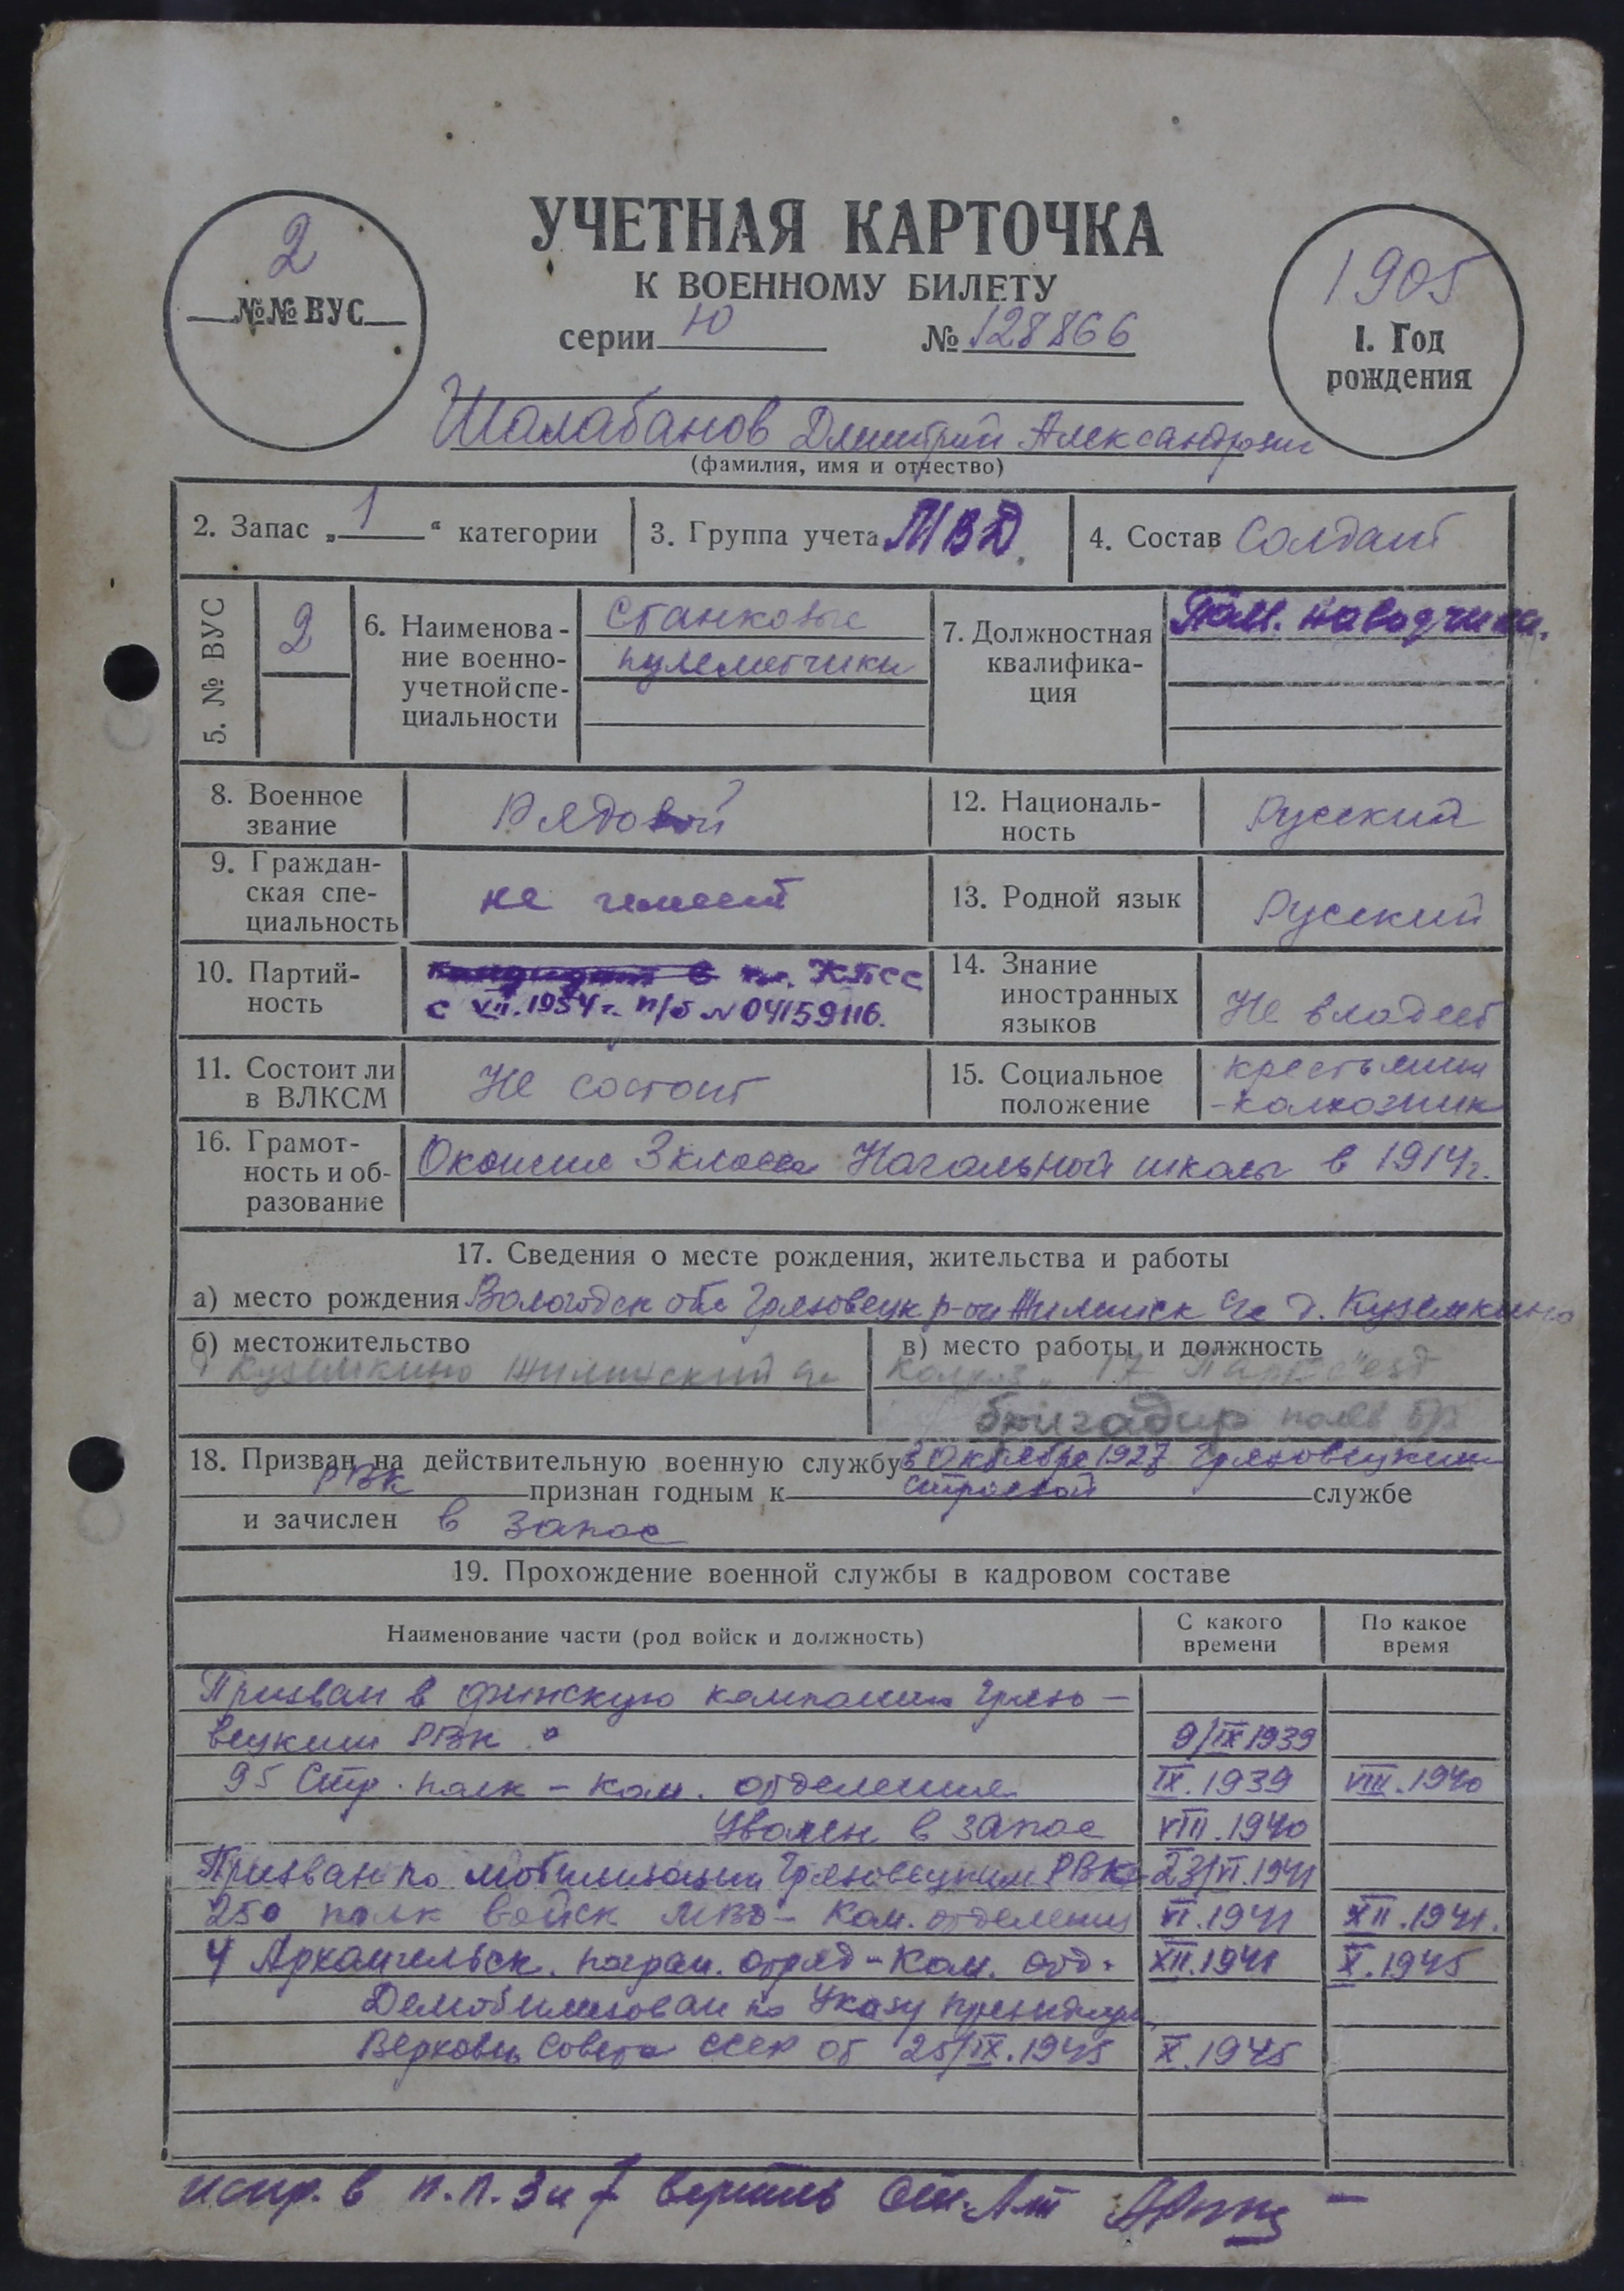 2
№№ ВУС
УЧЕТНАЯ КАРТОЧКА
К ВОЕННОМУ БИЛЕТУ
серии Ю № 128866
1905
1. Год
рождения
Шалабанов Дмитрий Александрович
(фамилия, имя и отчество)
2. Запас „1“ категории
3. Группа учета МВД.
4. Состав Солдат
5. № ВУС
2
6. Наименова-
ние военно-
учетной спе-
циальности
Станковые
пулеметчики
7. Должностная
квалифика-
ция
Пом. наводчика.
8. Военное
звание
Рядовой
12. Националь-
ность
Русский
9. Граждан-
ская спе-
циальность
не имеет
13. Родной язык
Русский
10. Партий-
ность
кандидат в чл. КПСС
с VII.1954 г. п/б № 04159116.
14. Знание
иностранных
языков
Не владеет
11. Состоит ли
в ВЛКСМ
Не состоит
15. Социальное
положение
крестьянин
-колхозник
16. Грамот-
ность и об-
разование
Окончил 3 класса Начальной школы в 1914 г.
17. Сведения о месте рождения, жительства и работы
а) место рождения Вологодск обл Грязовецк р-он с/с д. Куземкино
б) местожительство
д Куземкино с/с
в) место работы и должность
Колхоз „17 Партсъезд
бригадир полев бр
18. Призван на действительную военную службу 3 Октября 1927 Грязовецким
РВК признан годным к строевой службе
и зачислен в запас
19. Прохождение военной службы в кадровом составе
Наименование части (род войск и должность)
С какого
времени
По какое
время
Призван в финскую кампанию Грязо-
вецким РВК. 9/IX 1939
95 Стр. полк - ком. отделения IX.1939 VIII.1940
Уволен в запас VIII.1940
Призван по мобилизации Грязовецким РВК 23/VI.1941
250 полк войск МВД - Ком. отделения VI.1941 XII.1941.
4 Архангельск. погран. отряд - Ком. отд. XII.1941 X.1945
Демобилизован по Указу президиум.
Верховн. Совета СССР от 25/IX.1945 X.1945
испр. в п.п. 3 и 7 верить Ст. Л-т